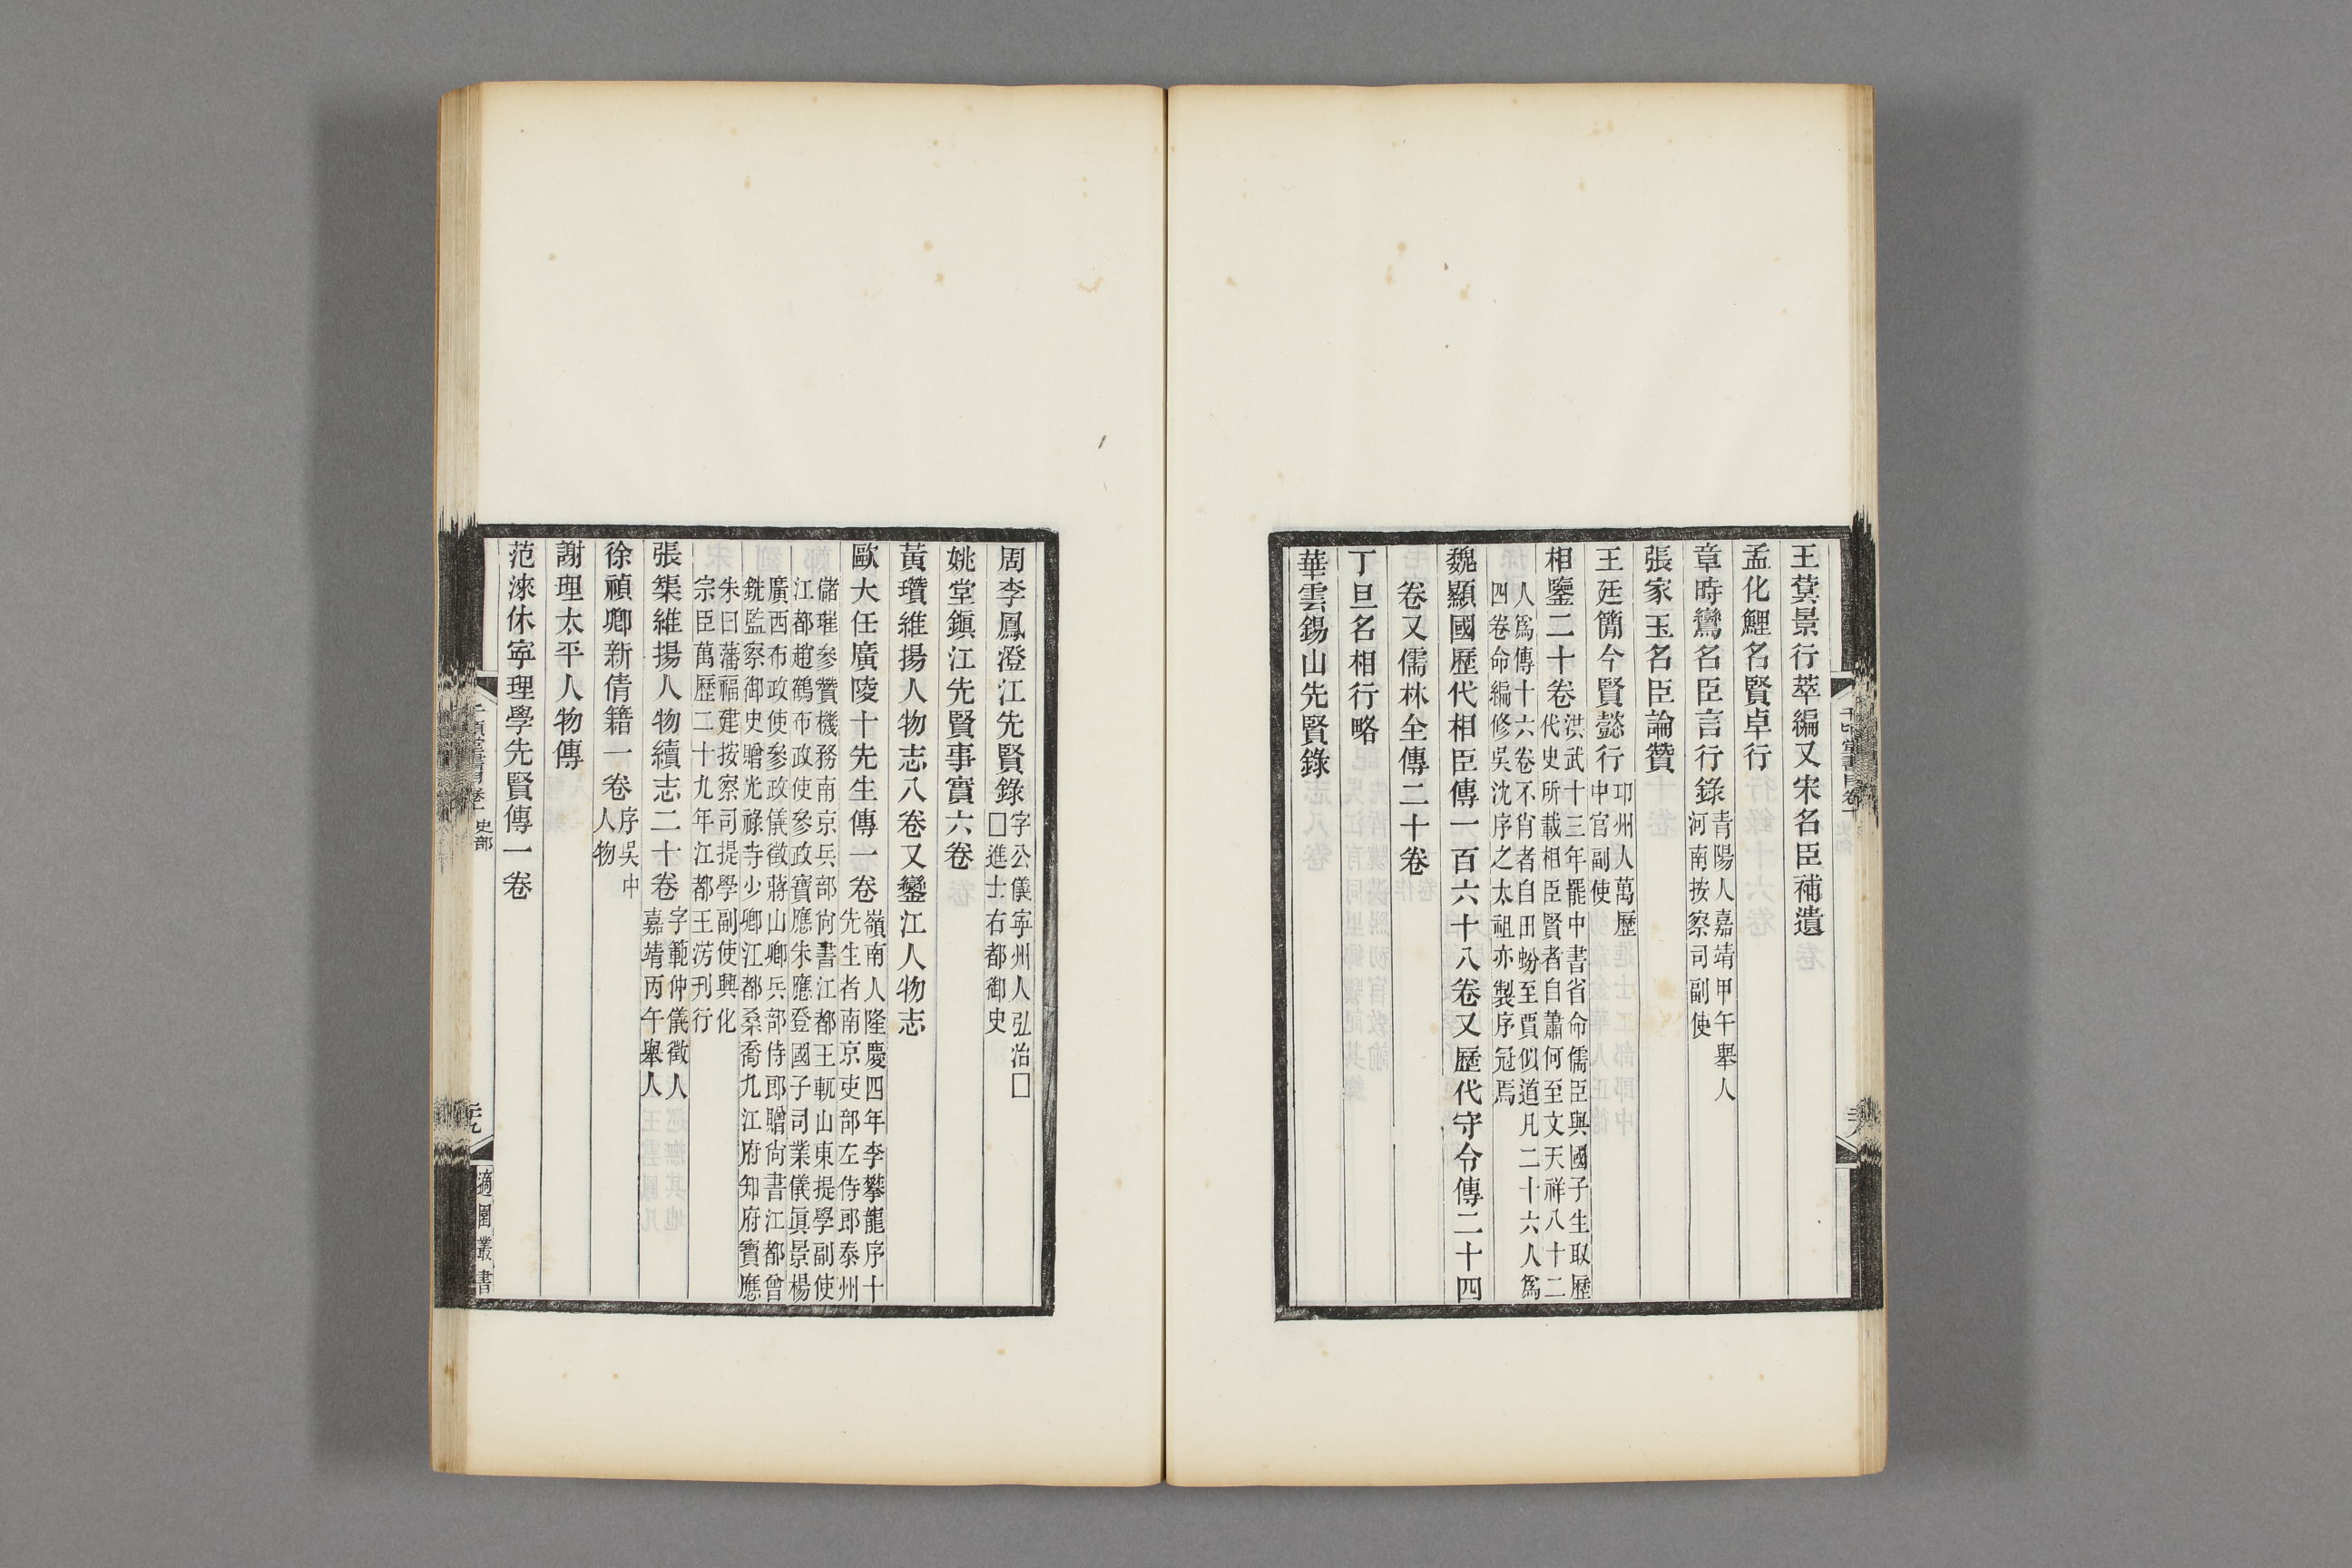 王蓂景行萃編又宋名臣補遺
孟化鯉名賢卓行
章時鸞名臣言行錄青陽人嘉靖甲午舉人
河南按察司副使
張家玉名臣論贊
王廷簡今賢懿行卭州人萬歷
中官副使
相鑒二十卷洪武十三年罷中書省命儒臣與國子生取歷
代史所載相臣賢者自蕭何至文天祥八十二
人爲傳十六卷不肖者自田蚡至賈似道凡二十六人爲
四卷命編修吳沈序之太祖亦製序冠焉
魏顯國歷代相臣傳一百六十八卷又歷代守令傳二十四
卷又儒林全傳二十卷
丁旦名相行略
華雲錫山先賢錄
周李鳳澄江先賢錄字公儀寧州人弘治□
□進士右都御史
姚堂鎭江先賢事實六卷
黃瓚維揚人物志八卷又鑾江人物志
歐大任廣陵十先生傳一卷嶺南人隆慶四年李攀龍序十
先生者南京吏部左侍郎泰州
儲瓘參贊機務南京兵部尙書江都王軏山東提學副使
江都趙鶴布政使參政寶應朱應登國子司業儀眞景楊
廣西布政使參政儀徵蔣山卿兵部侍郎贈尙書江都曾
銑監察御史贈光祿寺少卿江都桑喬九江府知府寶應
朱曰藩福建按察司提學副使興化
宗臣萬歷二十九年江都王𣴠刊行
張榘維揚人物續志二十卷字範仲儀徵人
嘉靖丙午舉人
徐禎卿新倩籍一卷序吳中
人物
謝理太平人物傳
范淶休寧理學先賢傳一卷
千頃堂書目卷十 史部
二十九
適園叢書